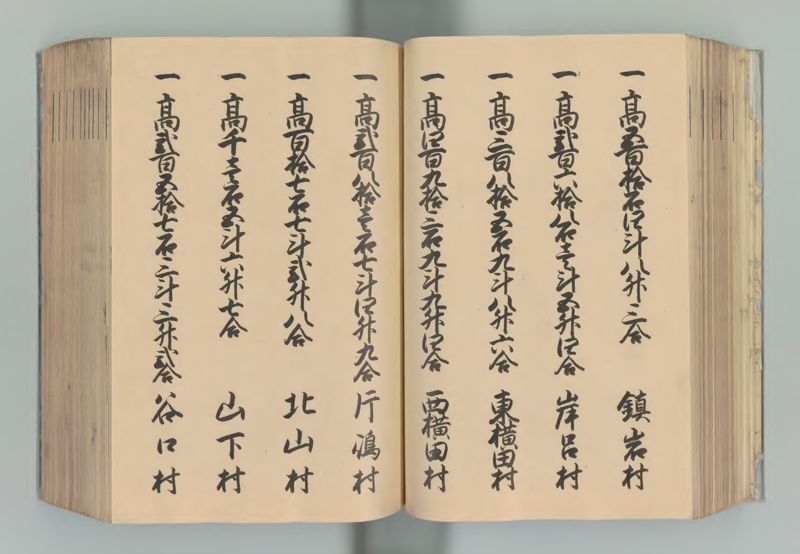 一 高五百拾石四斗八升三合 鎮岩村
一 高弐百六拾八石壱斗五升四合 岸呂村
一 高三百八拾五石九斗八升六合 東横田村
一 高四百九拾二石九斗九升四合 西横田村
一 高弐百八拾壱石七斗四升九合 片嶋村
一 高百拾七石七斗弐升八合 北山村
一 高千壱石五斗六升七合 山下村
一 高弐百五拾七石二斗三升弐合 谷口村